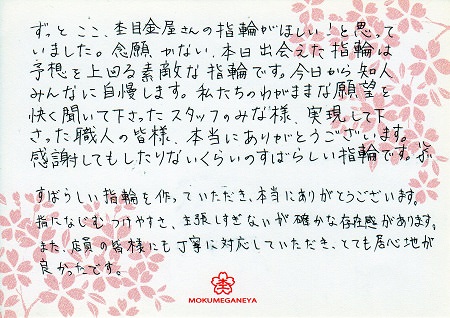 ずっと ここ、杢目金屋さんの指輪がほしい!と思って
いました。念願 かない、本日出会えた指輪は
予想を上回る素敵な指輪です。今日から知人
みんなに自慢します。私たちのわがままな願望を
快く聞いて下さったスタッフのみな様、実現して下
さった職人の皆様、本当にありがとうございます。
感謝してもしたりないくらいのすばらしい指輪です。
すばらしい指輪を作っていただき、本当にありがとうございます。
指になじむつけやすさ、主張しすぎないが確かな存在感があります。
また、店員の皆様にも丁寧に対応していただき、とても居心地が
良かったです。
MOKUMEGANEYA